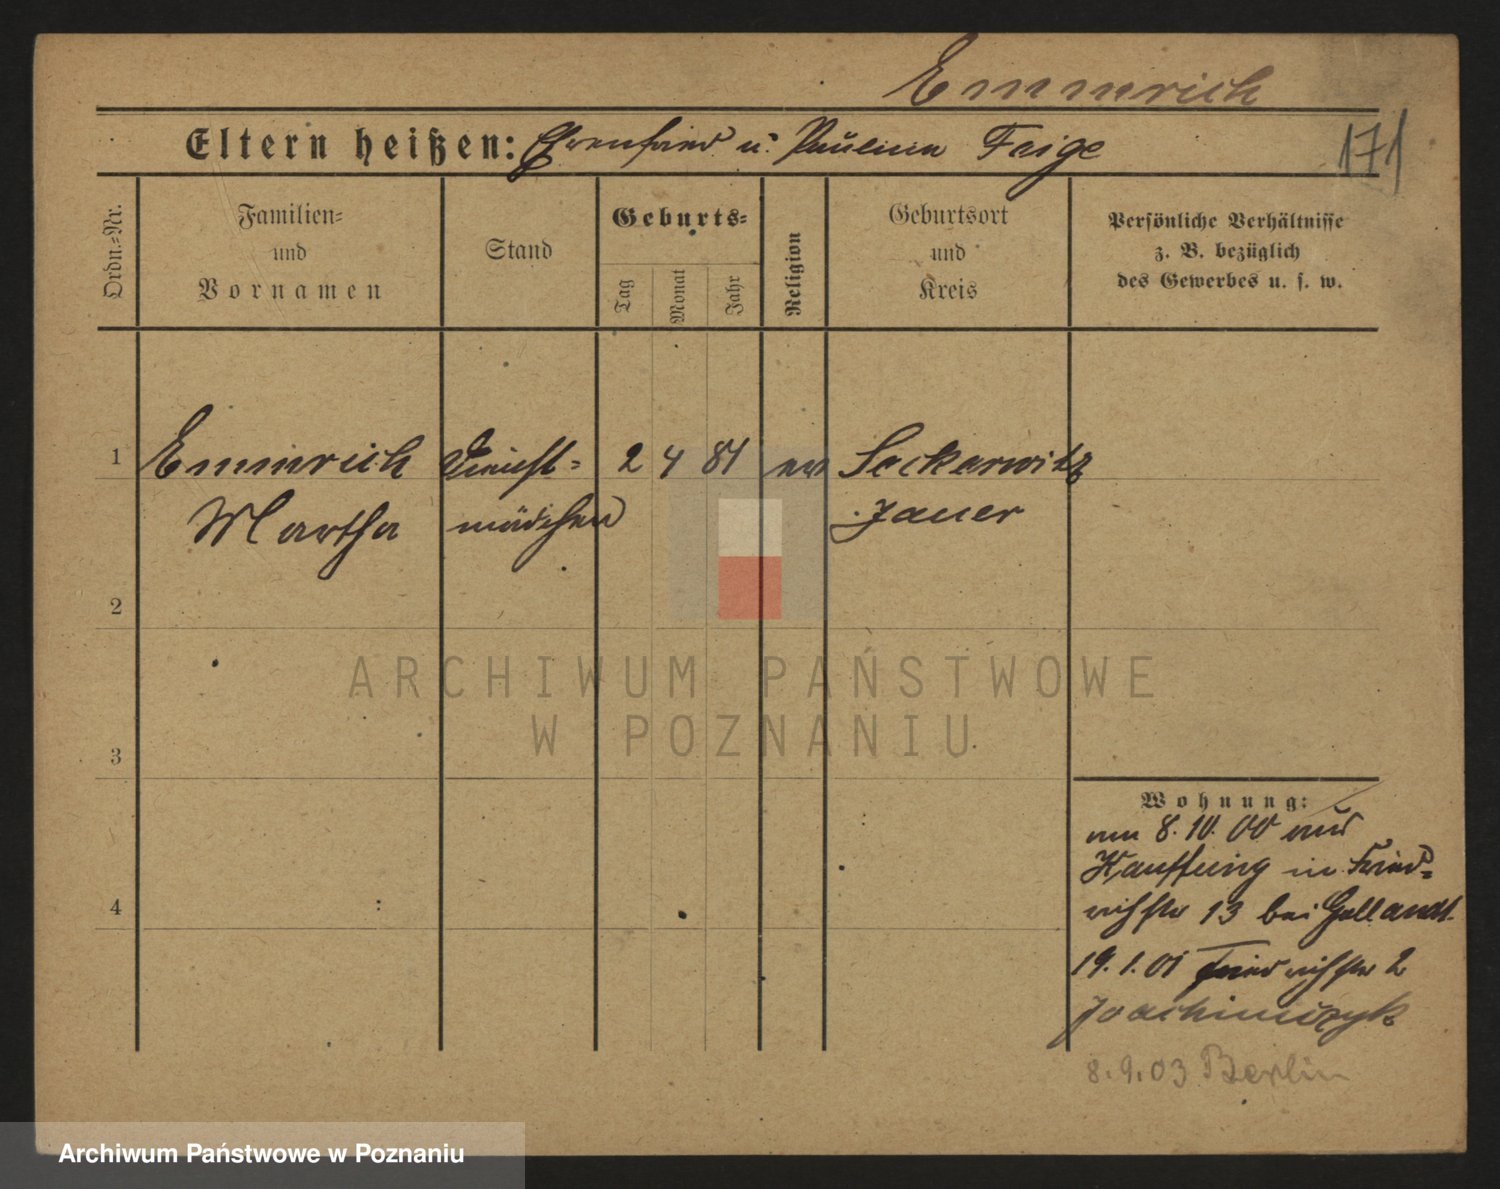 Emmrich
Eltern heißen: Ehrenfried u. Pauline Feige
171
Ordn.-Nr.
Familien-
und
Vornamen
Stand
Geburts-
Tag
Monat
Jahr
Religion
Geburtsort
und
Kreis
Persönliche Verhältnisse
z. B. bezüglich
des Gewerbes u. s. w.
1 Emmrich Dienst- 2 4 81 ev Seckerwitz
Martha mädchen Jauer
2
3
4
ARCHIWUM PAŃSTWOWE
W POZNANIU
Wohnung:
am 8.10.00 aus
Kauffung in Fried-
richstr 13 bei Gallandt.
19.1.01 Friedrichstr 2
Joachimczyk
8.9.03 Berlin
Archiwum Państwowe w Poznaniu